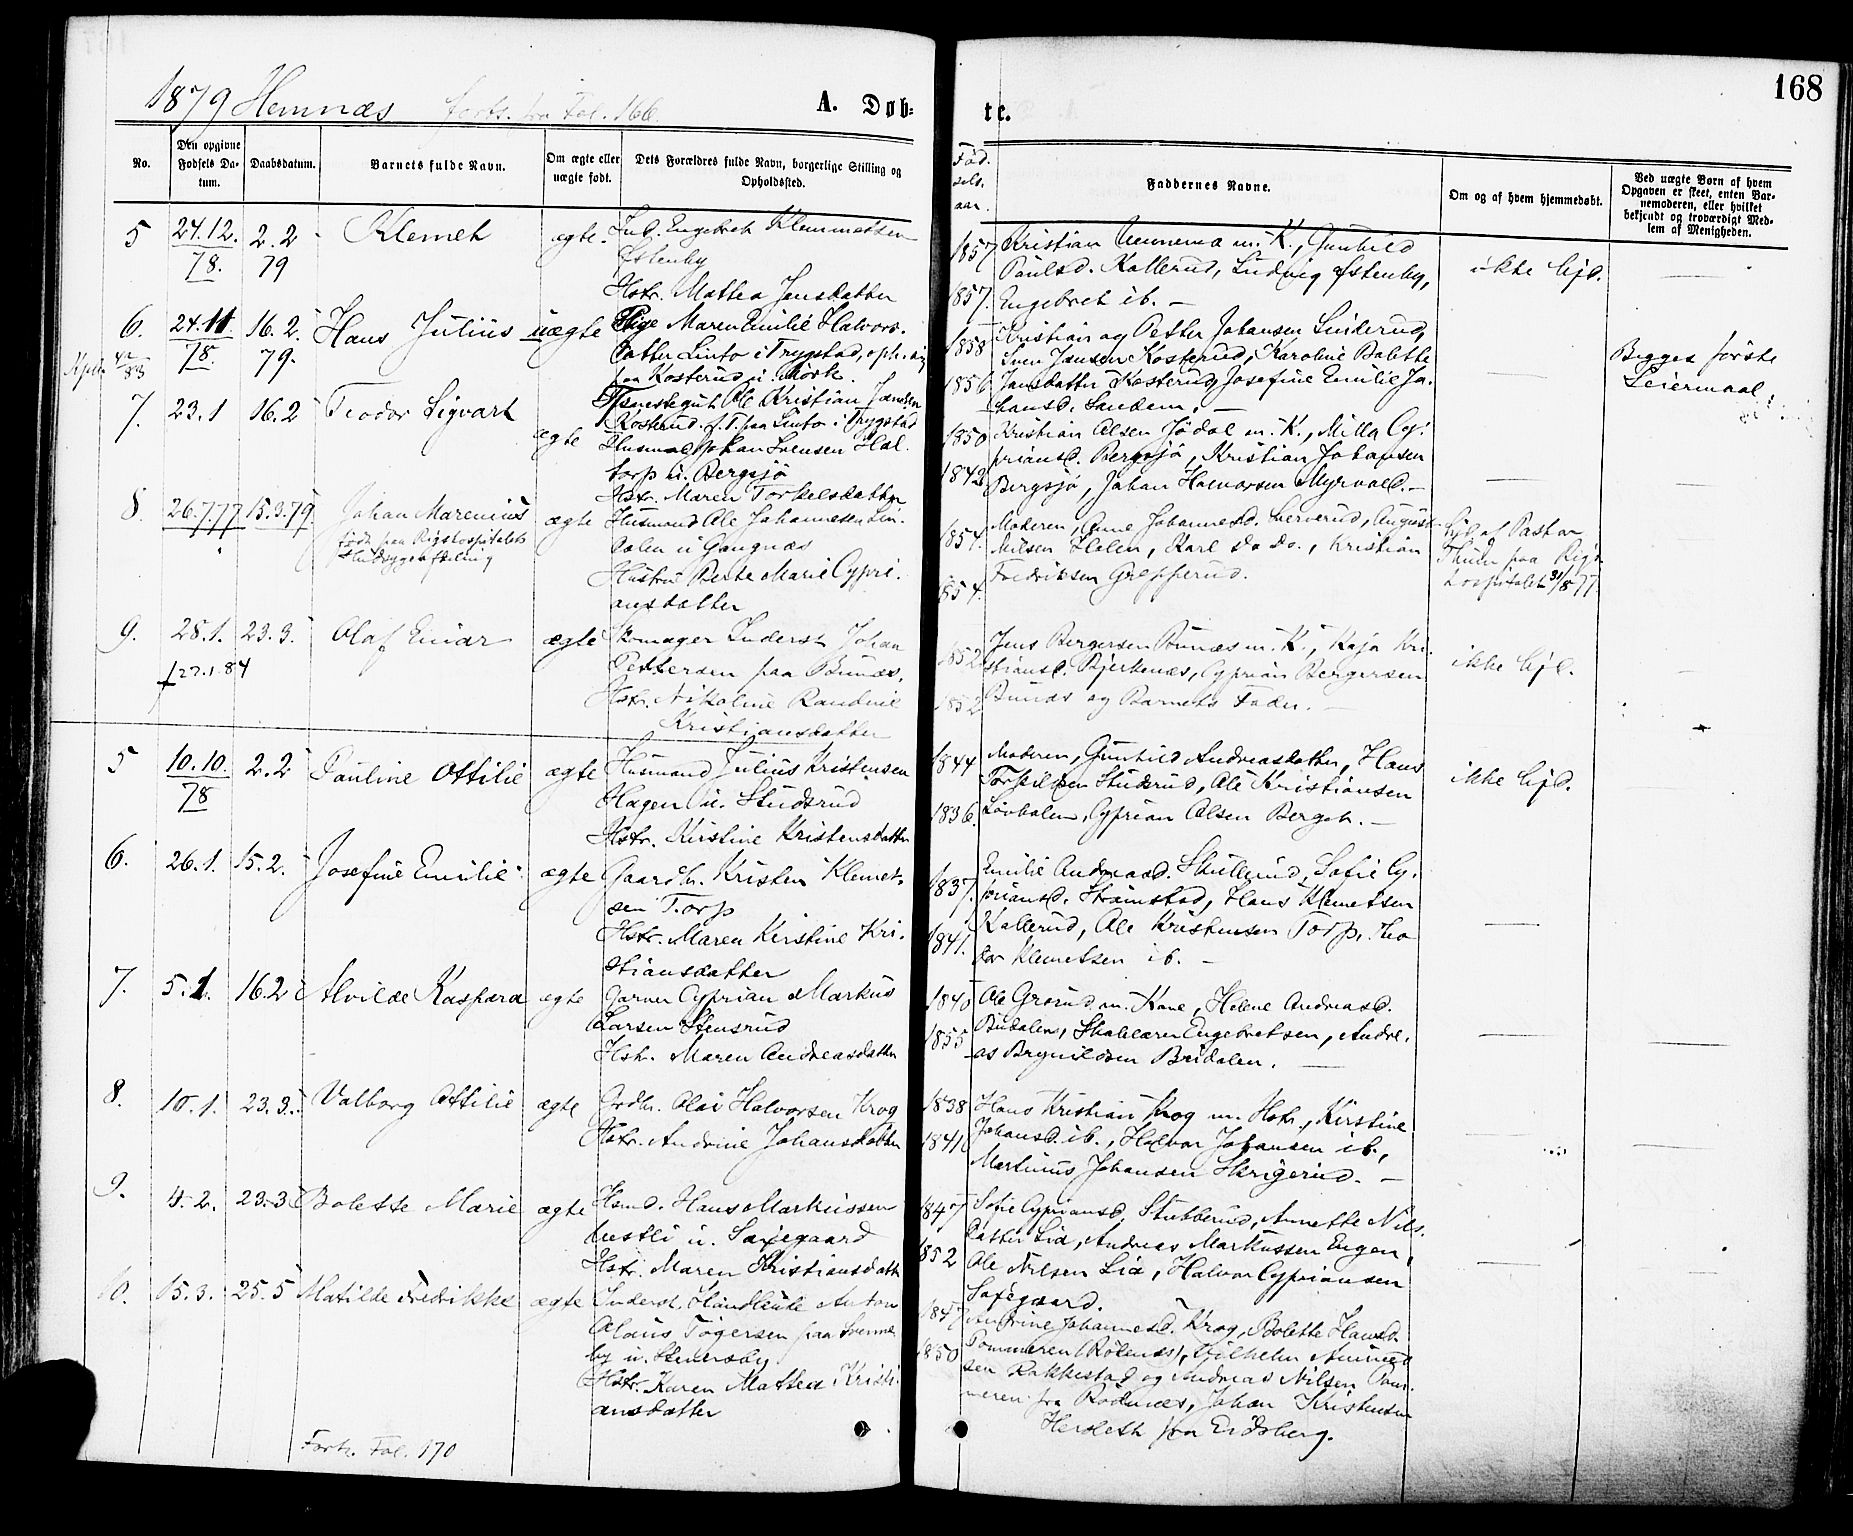 168
1879 Hemnæs forts. fra Fol. 166.
A. Døb-
te.
No.
Den opgivne Fødsels Datum.
Daabsdatum.
Barnets fulde Navn.
Om ægte eller uægte født.
Dets Forældres fulde Navn, borgerlige Stilling og Opholdssted.
Fødselsaar.
Faddernes Navne.
Om og af hvem hjemmedøbt.
Ved uægte Børn af hvem Opgaven er skeet, enten Barnemoderen, eller hvilket bekjendt og troværdigt Medlem af Menigheden.
5 24.12.78. 2.2 79 Klemet ægte.
Engebret Klemmetsen
Østenby
Hstr. Mathea Jensdatter
1857
1857.
Kristian m. K., Gunhild
Paulsd. Kallerud, Ludvig Østenby,
Engebret ib. —
ikke hjd.
6. 24.11.78. 16.2.79. Hans Julius uægte
Pige Maren Emilie Halvors-
datter Linto i Trygstad, oph. sig
paa Kosterud u. Mørk.
Kristian Jansen
Kosterud. f. T. paa Linto i Trygstad
1858
1856
Kristian og Petter Johansen Linderud,
Sven Jansen Kosterud, Karoline Bolette
Jansdatter Kosterud, Josefine Emilie Jo-
hansd. Sandem. —
Begges første
Leiermaal.
7. 23.1 16.2 Teodor Sigvart ægte
Husmand Johan Svensen Hal-
torp u. Bergsjø
Hstr. Maren Torkelsdatter
1850
1842
Kristian Olsen Jødal m. K., Milla Cy-
priansd. Bergsjø, Kristian Johansen
Bergsjø, Johan Halvorsen Myrvold. —
8. 26.7.77. 15.3.79. Johan Marenius ægte
født paa Rigshospitalets
Hudsygeafdeling
Husmand Ole Johannesen Lin-
dalen u Gangnæs
Hustru Berte Marie Cypri-
ansdatter
1854.
1854.
Moderen, Anne Johannesd. Sververud, August
Nilsen Holen, Karl do do., Kristian
Fredriksen Grepperud.
hjd. af Pastor
Thurn paa Rigs-
hospitalet 31/8 77
9. 28.1. 23.3. Olaf Einar ægte
† 27.1.84
Skomager Inderst Johan
Pettersen paa Bunæs,
Hstr. Nikoline Randine
Kristiansdatter
1852
1852
Jens Bergersen Bunæs m. K., Kaja Kri-
stiansd. Bjerkenæs, Cyprian Bergersen
Bunæs og Barnets Fader. —
ikke hjd.
5 10.10.78 2.2 Pauline Ottilie ægte
Husmand Julius Kristensen
Hagen u. Studsrud
Hstr. Kirstine Kristensdatter
1844
1836.
Moderen, Gunhild Andreasdatter, Hans
Torkildsen Studsrud, Ole Kristiansen
Løvdalen, Cyprian Olsen Berget. —
ikke hjd.
6. 26.1. 15.2. Josefine Emilie ægte
Gaardbr. Kristen Klemet-
sen Torp
Hstr. Maren Kirstine Kri-
stiansdatter
1837.
1841.
Emilie Andreasd. Skullerud, Sofie Cy-
priansd. Strømstad, Hans Klemetsen
Kallerud, Ole Kristensen Torp, Teo-
dor Klemetsen ib. —
7. 5.1. 16.2 Alvilde Kaspara ægte
Garver Cyprian Markus
Larsen Stensrud
Hstr. Maren Andreasdatter
1840
1855
Ole Grorud m. Kone, Helene Andreasd.
Budalen, Skolelærer Engebretsen, Andre-
as Brynildsen Budalen. —
8. 10.1. 23.3. Valborg Ottilie ægte
Grdbr. Olai Halvorsen Krog
Hstr. Andrine Johansdatter
1838
1841
Hans Kristian Krog m. Hstr., Kirstine
Johansd. ib., Halvor Johansen ib.,
Martinus Johansen Skrigerud. —
9. 4.2. 23.3 Bolette Marie ægte
Hsmd. Hans Markussen
u. Saxegaard
Hstr. Maren Kristiansdatter
1847
1852
Sofie Cypriansd. Stubberud, Annette Nils-
datter Lia, Andreas Markussen Engen,
Ole Nilsen Lia, Halvor Cypriansen
Saxegaard.
10. 15.3. 25.5 Matilde Fredrikke ægte
Inderst. Handlende Anton
Olaus Tøgersen paa Svenne-
by u. Stenersby
Hstr. Karen Mathea Kristi-
ansdatter
1847
1850
Andrine Johannesd. Krog, Bolette Hansd.
Pommeren (Rødenæs), Vilhelm
sen Rakkestad og Andreas Nilsen Pom-
meren fra Rødenæs, Johan Kristensen
Herseth fra Eidsberg.
Forts. Fol. 170